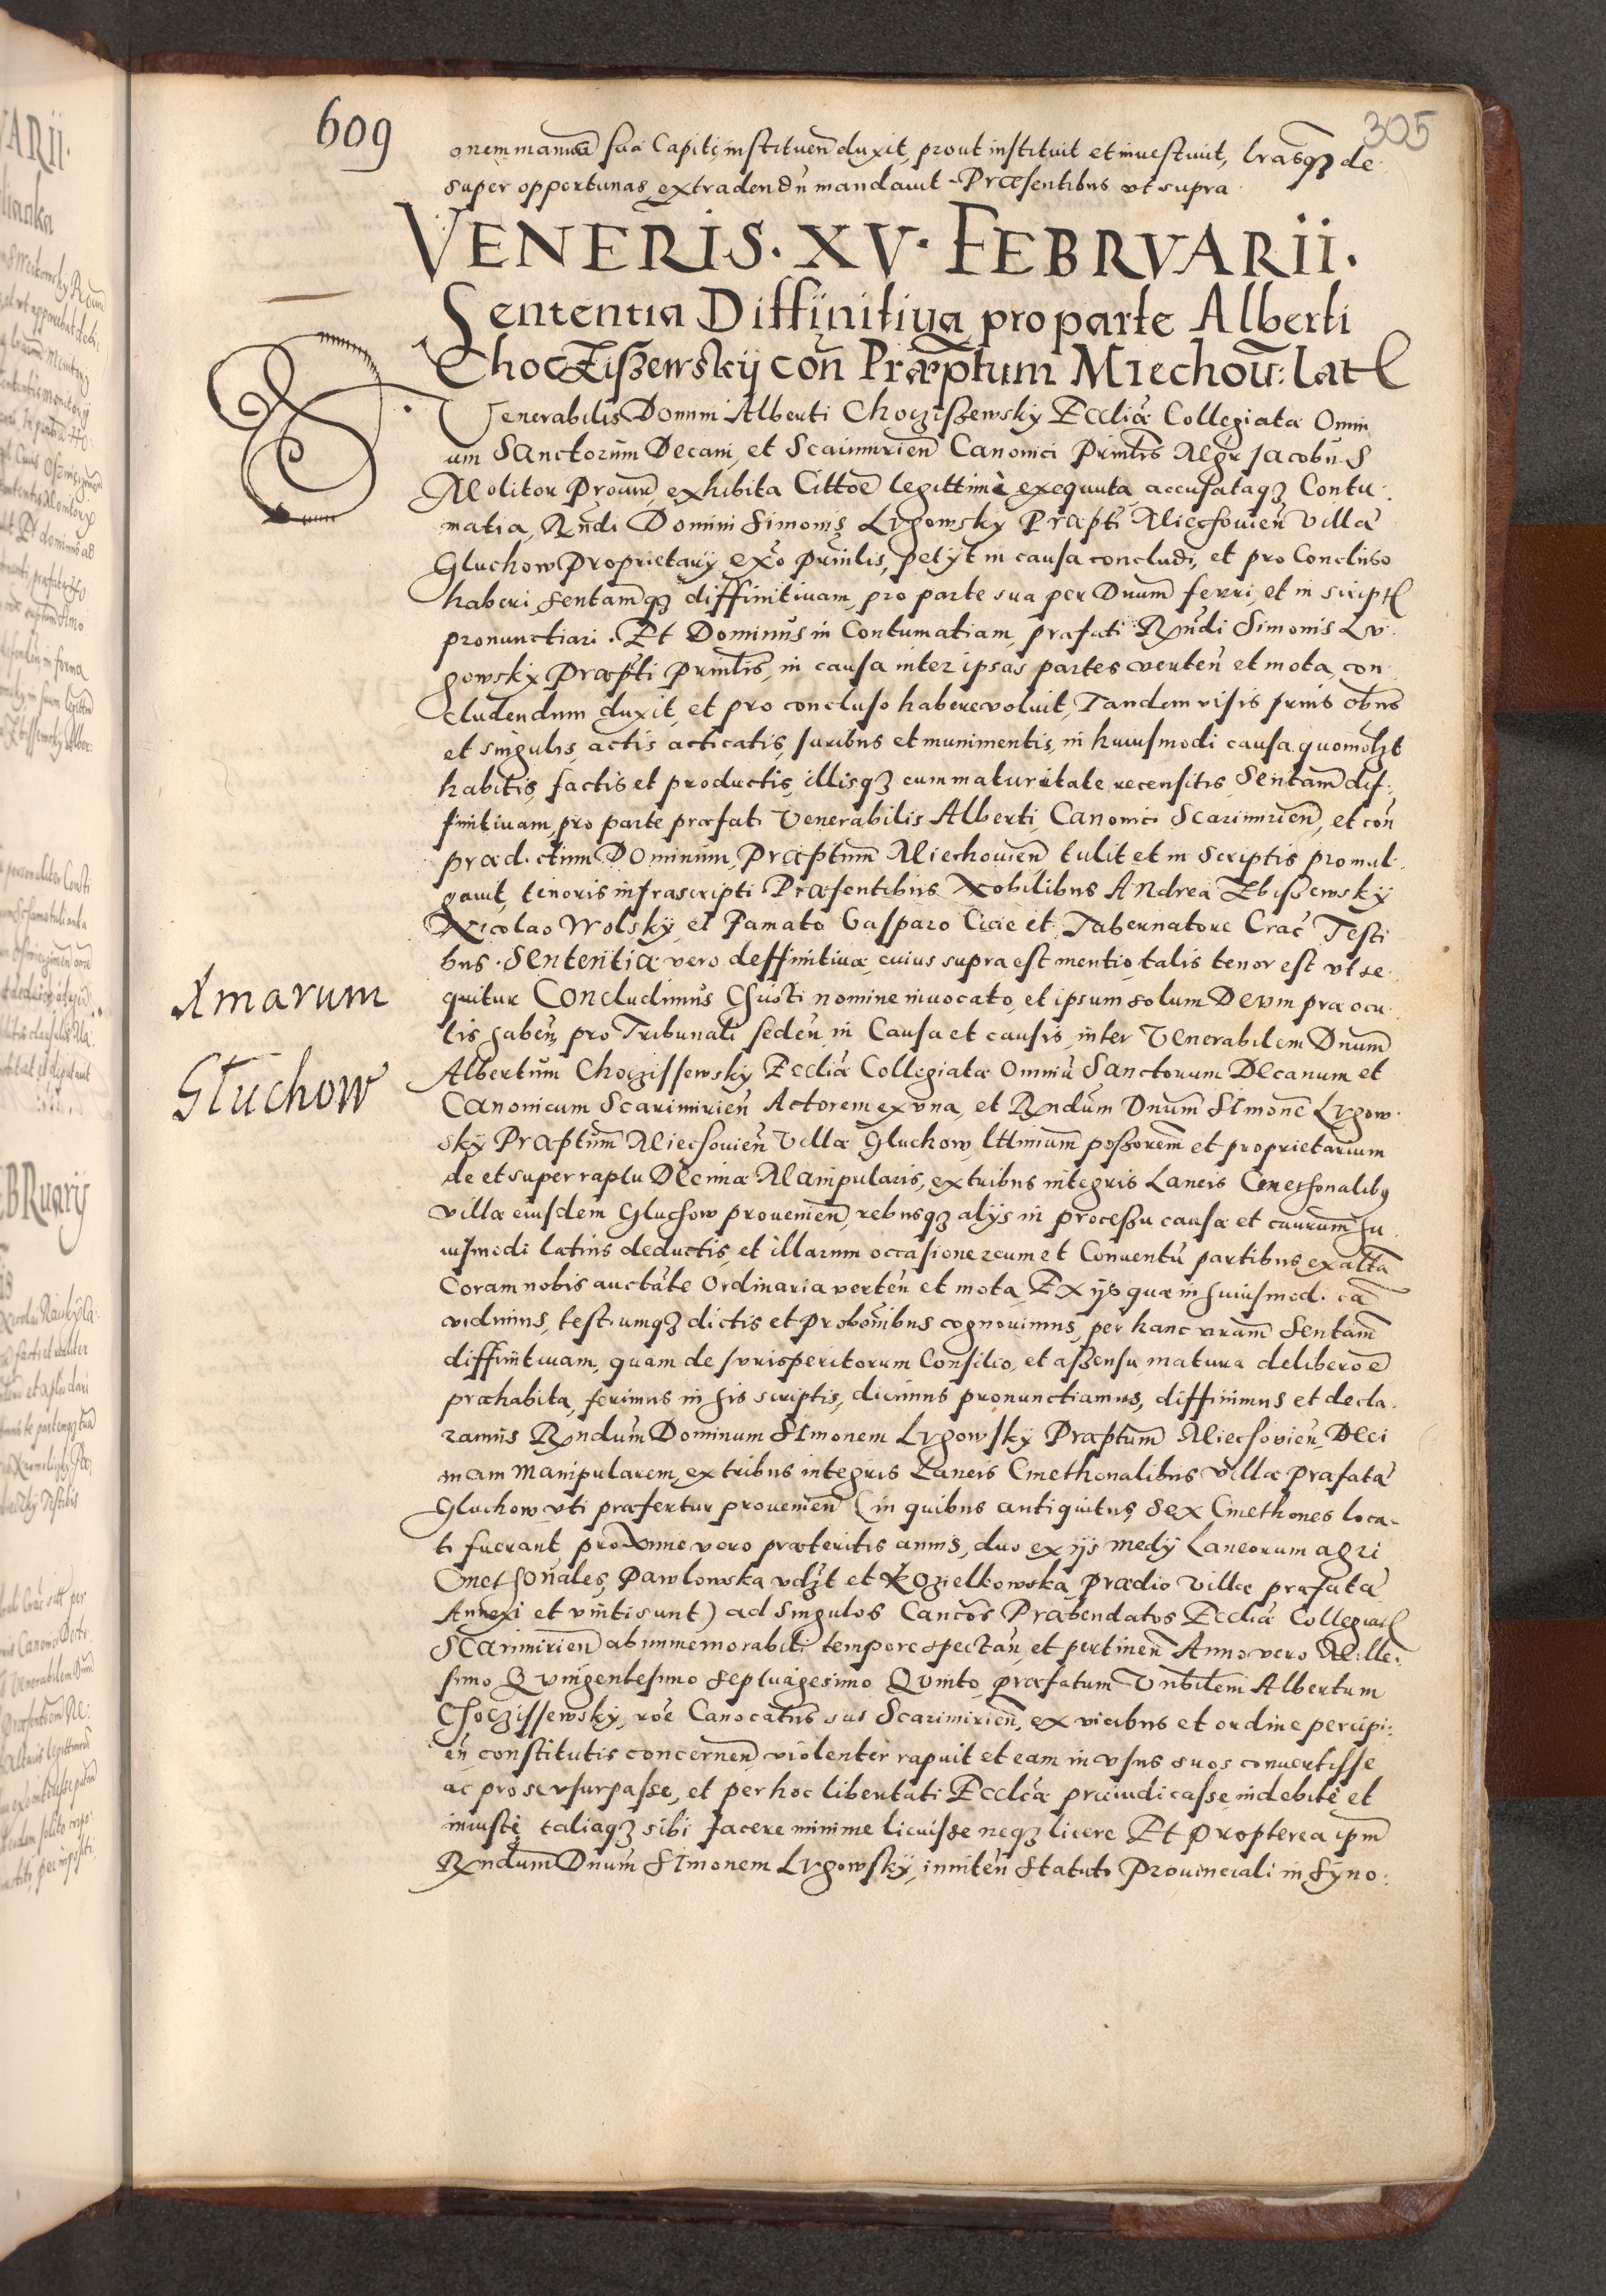 609
305
onem manuū sua Capiti instituen̄ duxit, prout instituit et inuestiuit, lrasqȝ de
super opportunas extradendū mandauit. Præsentibus vt supra
VENERIS. XV. FEBRVARII.
Sententia Diffinitiua pro parte Alberti
Choczissewskij con̄ Præptum Miechou: lat
Venerabilis Domini Alberti Choczissewsky Eccliæ Collegiatæ Omni
um Sanctorum Decani, et Scarimirien̄ Canonici Prīntis Mgr Jacobus
Molitor Procur̄, exhibita Cittoē legittimè exequuta, accusataqȝ Contu:
matia, Rn̄di Domini Simonis Lvgowsky Præpti Miechouien̄ Villæ
Gluchow Proprietarij ex̄o prīntis, petijt in causa concludi, et pro Concluso
haberi, sentam̄qȝ diffinitiuam, pro parte sua per Dnum̄ ferri, et in script
pronunctiari. Et Dominus in Contumatiam, præfati Rn̄di Simonis Lv:
gowsky Præpti Prīntis, in causa inter ipsas partes verten̄ et mota, con
cludendum duxit, et pro concluso habere voluit, Tandem visis prius oībus
et singulis, actis acticatis, iuribus et munimentis, in huiusmodi causa quomolȝt
habitis, factis et productis, illisqȝ cum maturitate recensitis Sentam̄ dif:
finitiuam, pro parte præfati Venerabilis Alberti, Canonici Scarimirien̄, et con̄
prædictum Dominum, Præptum̄ Miechouien̄ tulit et in scriptis promul
gauit, tenoris infrascripti Præsentibus Nobilibus Andrea Zbissewsky
Nicolao Wolsky, et Famato Gasparo Ciue et Tabernatore Crac̄ Testi
bus. Sententiæ vero deffinitiuæ, cuius supra est mentio, talis tenor est vt se
quitur Concludimus Christi nomine inuocato, et ipsum solum Deum præ ocu
lis haben̄, pro Tribunali seden̄, in Causa et causis, inter Venerabilem Dnum̄
Albertum Choczissewsky Eccliæ Collegiatæ Omniū Sanctorum Decanum et
Canonicum Scarimirien̄ Actorem ex vna, et Rn̄dum Dnum̄ Simonē Lvgow
sky Præptum̄ Miechouien̄ Villæ Gluchow, lttimum̄ possorem̄ et proprietarium
de et super raptu Decimæ Manipularis, ex tribus integris Laneis Cmethonalibȝ
villæ eiusdem Gluchow prouenien̄, rebusqȝ alijs in processu causæ et caurum̄ hu
iusmodi latius deductis, et illarum occasione reum et Conuentū partibus ex alta
Coram nobis auctate Ordinaria verten̄ et mota, Ex ijs quæ in huiusmodi cā
vidimus, testiumqȝ dictis et probōnibus cognouimus, per hanc nram̄ sentam̄
diffinitiuam, quam de Iurisperitorum Consilio, et assensu matura deliberoē
præhabita, ferimus in his scriptis, dicimus pronunctiamus, diffinimus et decla
ramus Rn̄dum Dominum Simonem Lvgowsky Præptum̄ Miechouien̄, Deci
mam Manipularem, ex tribus integris Laneis Cmethonalibus Villæ præfatæ
Gluchow, vti præfertur prouenien̄ (in quibus antiquitus Sex Cmethones loca-
ti fuerant, proxime vero præteritis annis, duo ex ijs medij Laneorum agri
Cmethonales, Pawlowska vdȝt et Kozielkowska prædio Villæ præfatæ
Annexi et vniti sunt) ad singulos Cancos Præbendatos Eccliæ Collegiat
Scarimirien̄ ab immemorabili tempore spectan̄, et pertinen̄ Anno vero Mille:
simo Quingentesimo Septuagesimo Quinto, præfatum Vn̄bilem Albertum
Choczissewsky, roē Canocatus sui Scarimirien̄, ex vicibus et ordine percipi:
en̄ constitutis concernen̄, violenter rapuit et eam in vsus suos conuertisse
ac pro se vsurpasse, et per hoc libertati Eccliæ præiudicasse, indebitè et
iniustè taliaqȝ sibi facere minime licuisse neqȝ licere Et propterea ipm̄
Rn̄dum Dnum̄ Simonem Lvgowsky, inniten̄ Statuto Prouinciali in Syno:
Xmarum
Gluchow